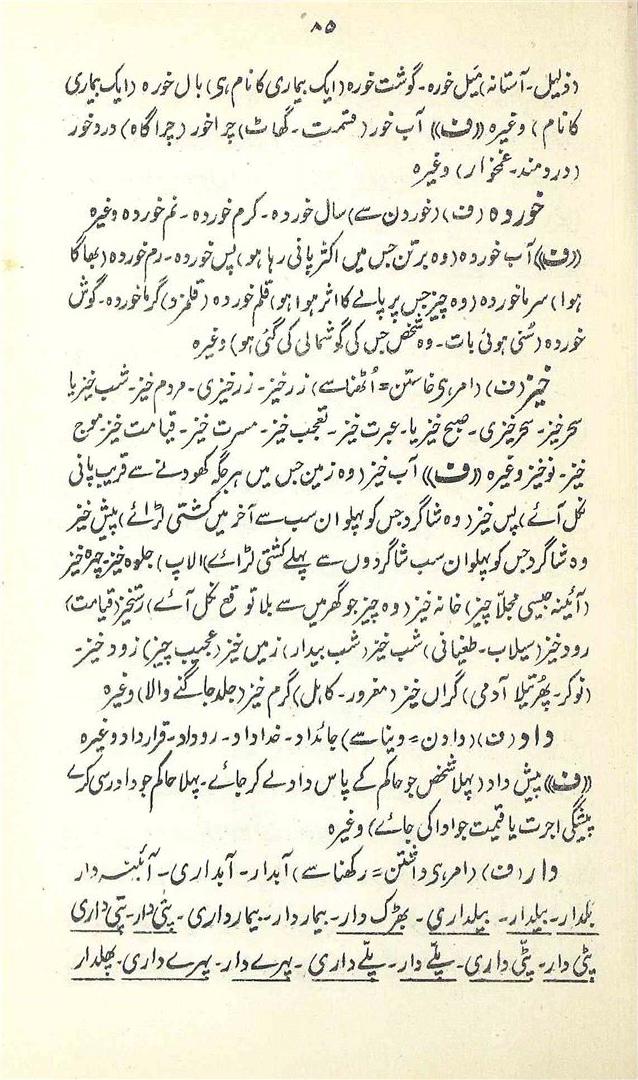 ۸۵
(ذلیل۔ آستانہ) میل خورہ۔ گوشت خورہ (ایک بیماری کا نام ہی) بال خورہ (ایک بیماری
کا نام) وغیرہ ((ف)) آب خور (قسمت۔ گھاٹ) چراخور (چراگاہ) درد خور
(دردمند۔ غمخوار) وغیرہ
خوردہ (ف) (خوردن سے) سال خوردہ۔ کرم خوردہ۔ نم خوردہ وغیرہ
((ف)) آب خوردہ (وہ برتن جس میں اکثر پانی رہا ہو) پس خوردہ۔ رم خوردہ (بھاگا
ہوا) سرما خوردہ (وہ چیز جس پر پالے کا اثر ہوا ہو) قلم خوردہ (قلمزد) گرما خوردہ۔ گوش
خوردہ (سُنی ہوئی بات۔ وہ شخص جس کی گوشمالی کی گئی ہو) وغیرہ
خیز (ف) (امر ہی خاستن = اُٹھنا سے) زرخیز۔ زرخیزی۔ مردم خیز۔ شب خیزیا
سحر خیز۔ سحر خیزی۔ صبح خیزیا۔ عبرت خیز۔ تعجب خیز۔ مسرت خیز۔ قیامت خیز۔ موج
خیز۔ نوخیز وغیرہ ((ف)) آب خیز (وہ زمین جس میں ہر جگہ کھودنے سے قریب پانی
نکل آئے) پس خیز (وہ شاگرد جس کو پہلوان سب سے آخر میں کشتی لڑائے) پیش خیز
وہ شاگرد جس کو پہلوان سب شاگردوں سے پہلے کشتی لڑائے) (الاپ) جلوہ خیز۔ چہرہ خیز
(آئینہ جیسی مجلّا چیز) خانہ خیز (وہ چیز جو گھر میں سے بلا توقع نکل آئے) رستخیز (قیامت)
رود خیز (سیلاب۔ طغیانی) شب خیز (شب بیدار) زمیں خیز (عجیب چیز) زود خیز۔
(نوکر۔ پھُرتیلا آدمی) گراں خیز (مغرور۔ کاہل) گرم خیز (جلد جاگنے والا) وغیرہ
داد (ف) (دادن = دینا سے) جائداد۔ خداداد۔ روداد۔ قرارداد وغیرہ
((ف)) پیش داد (پہلا شخص جو حاکم کے پاس داد لے کر جائے۔ پہلا حاکم جو داد رسی کرے
پیشگی اجرت یا قیمت جو ادا کی جائے) وغیرہ
دار (ف) (امر ہی داشتن = رکھنا سے) آبدار۔ آبداری۔ آئینہ دار
بلدار۔ بیلدار۔ بیلداری۔ بھڑک دار۔ بیمار دار۔ بیمارداری۔ پتی دار۔ پتی داری
پٹی دار۔ پٹی داری۔ پلّے دار۔ پلّے داری۔ پہرے دار۔ پہرے داری۔ پھلدار